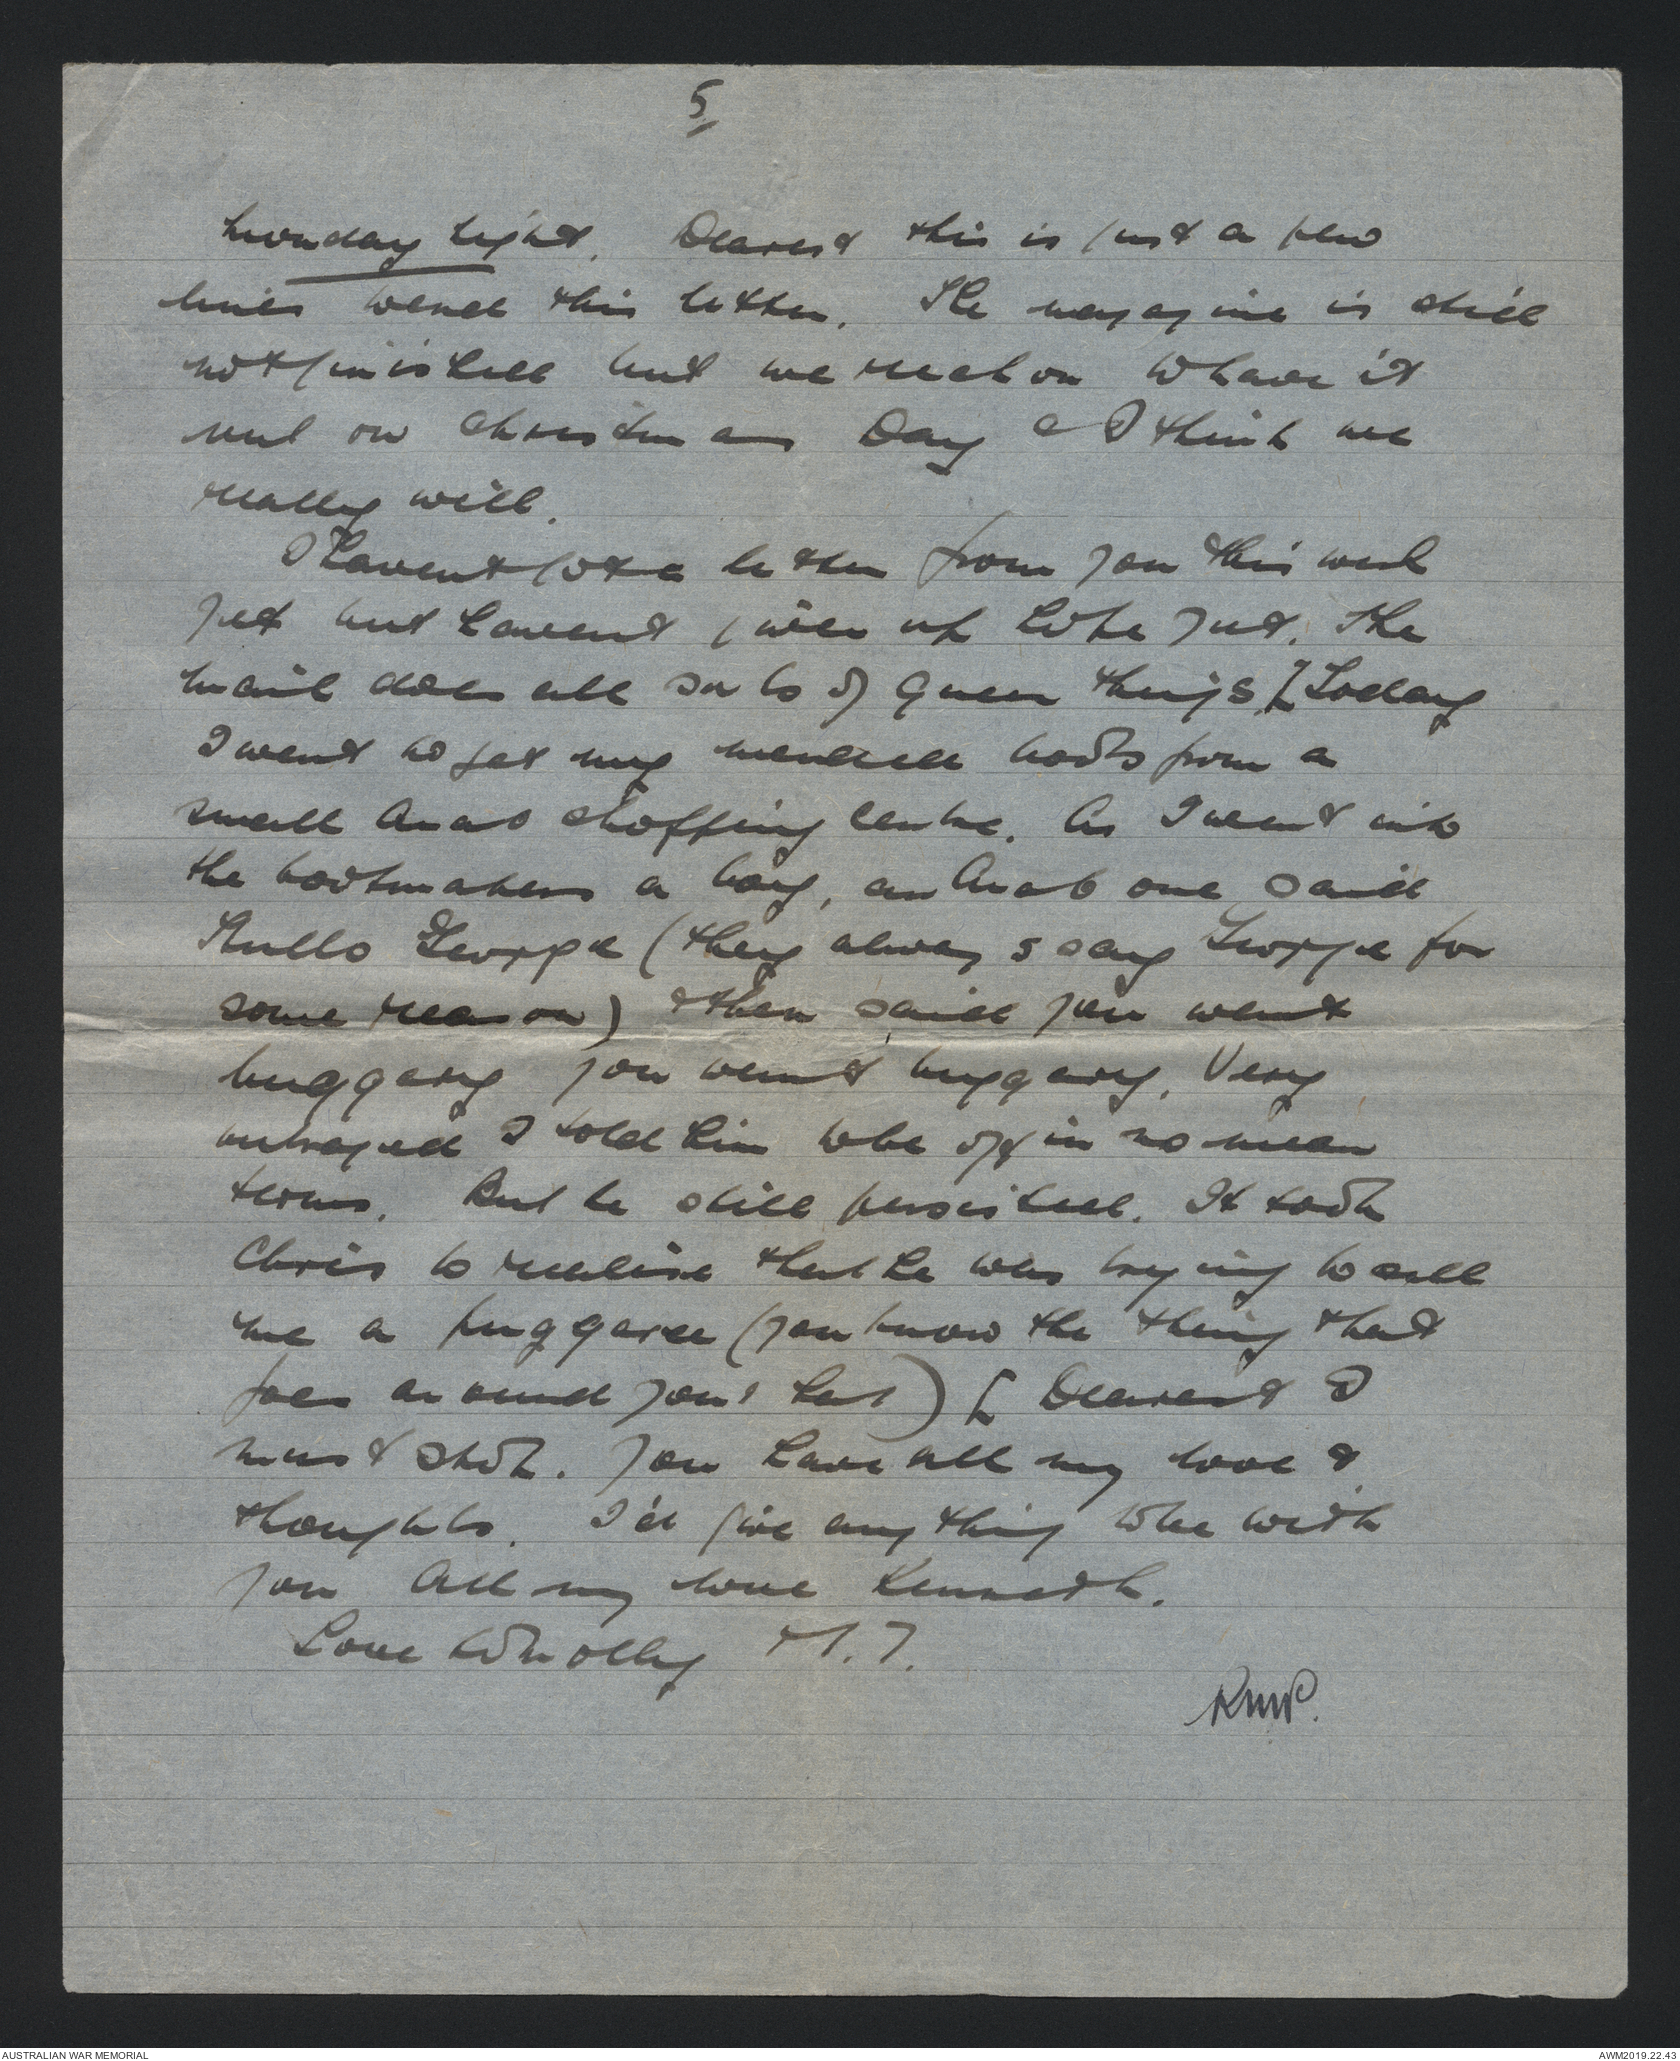 5
Monday Night. Dearest this is just a few
lines to end this letter. The magazine is still
not finished but we reckon to have it
out on Christmas Day & I think we
really will.
I havent got a letter from you this week
yet but havent given up hope just. The
mail does all sorts of queer things. [Today
I went to get my mended boots from a
small Arab shopping centre. As I went into
the bootmakers a boy, an Arab one said
Hullo George (they always say George for
some reason) & then said you want
buggery you want buggery. Very
outraged I told him to be off in no mean
terms. But he still persisted. It took
Chris to realise that he was trying to sell
me a puggaree (you know the thing that
goes around your hat) [ Dearest I
must stop. You have all my love &
thoughts. I'd give anything to be with
you All my love Kenneth.
Love to Molly
RMP.
AUSTRALIAN WAR MEMORIAL
AWM2019.22.43